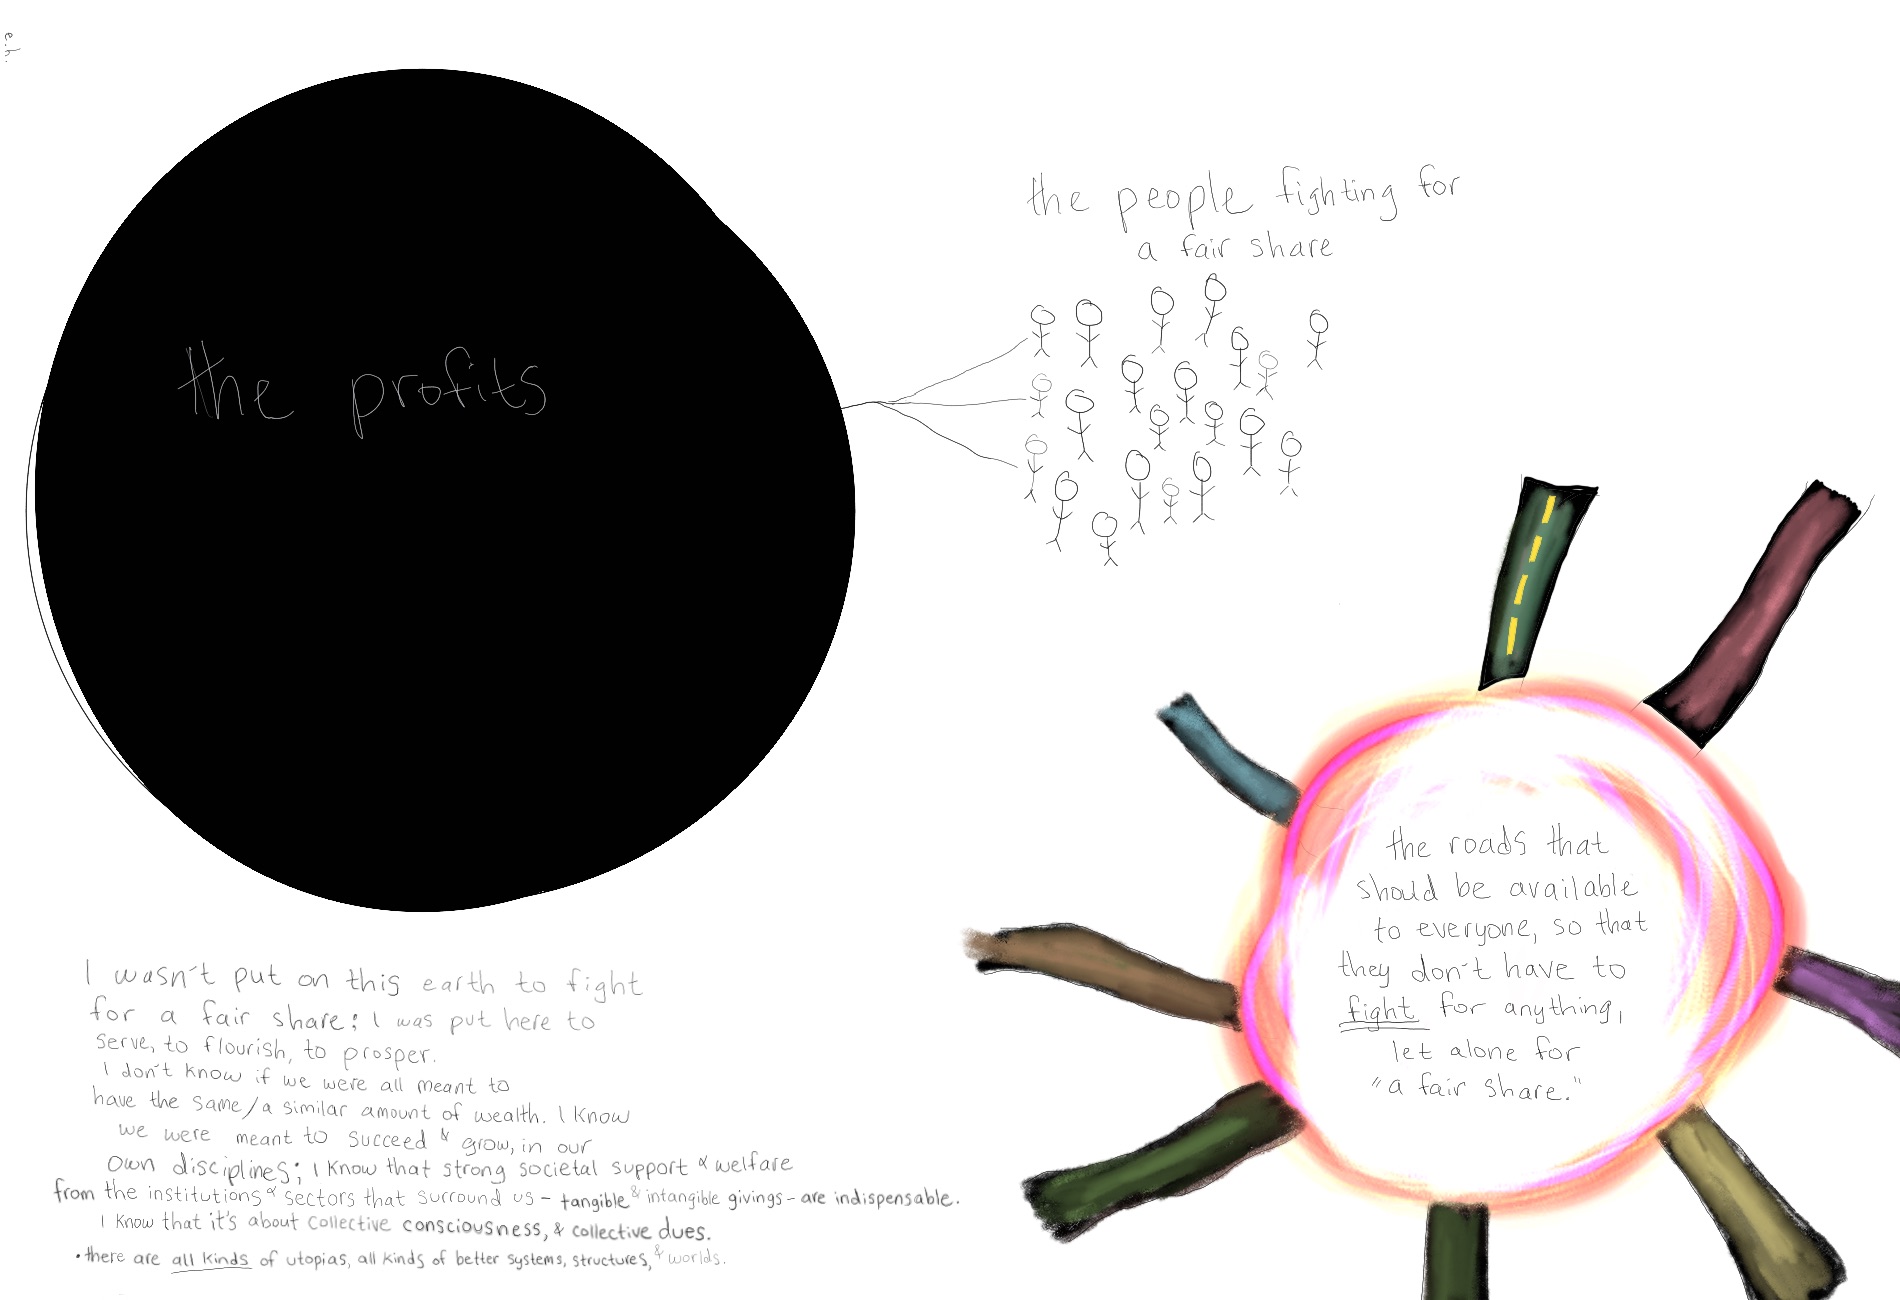 e.h.
the profits
the people fighting for
a fair share
the roads that
should be available
to everyone, so that
they don't have to
fight for anything,
let alone for
"a fair share."
I wasn't put on this earth to fight
for a fair share; I was put here to
serve, to flourish, to prosper.
I don't know if we were all meant to
have the same/a similar amount of wealth. I know
we were meant to succeed & grow, in our
own disciplines; I know that strong societal support & welfare
from the institutions & sectors that surround us - tangible & intangible givings - are indispensable.
I know that it's about collective consciousness, & collective dues.
• there are all kinds of utopias, all kinds of better systems, structures, & worlds.